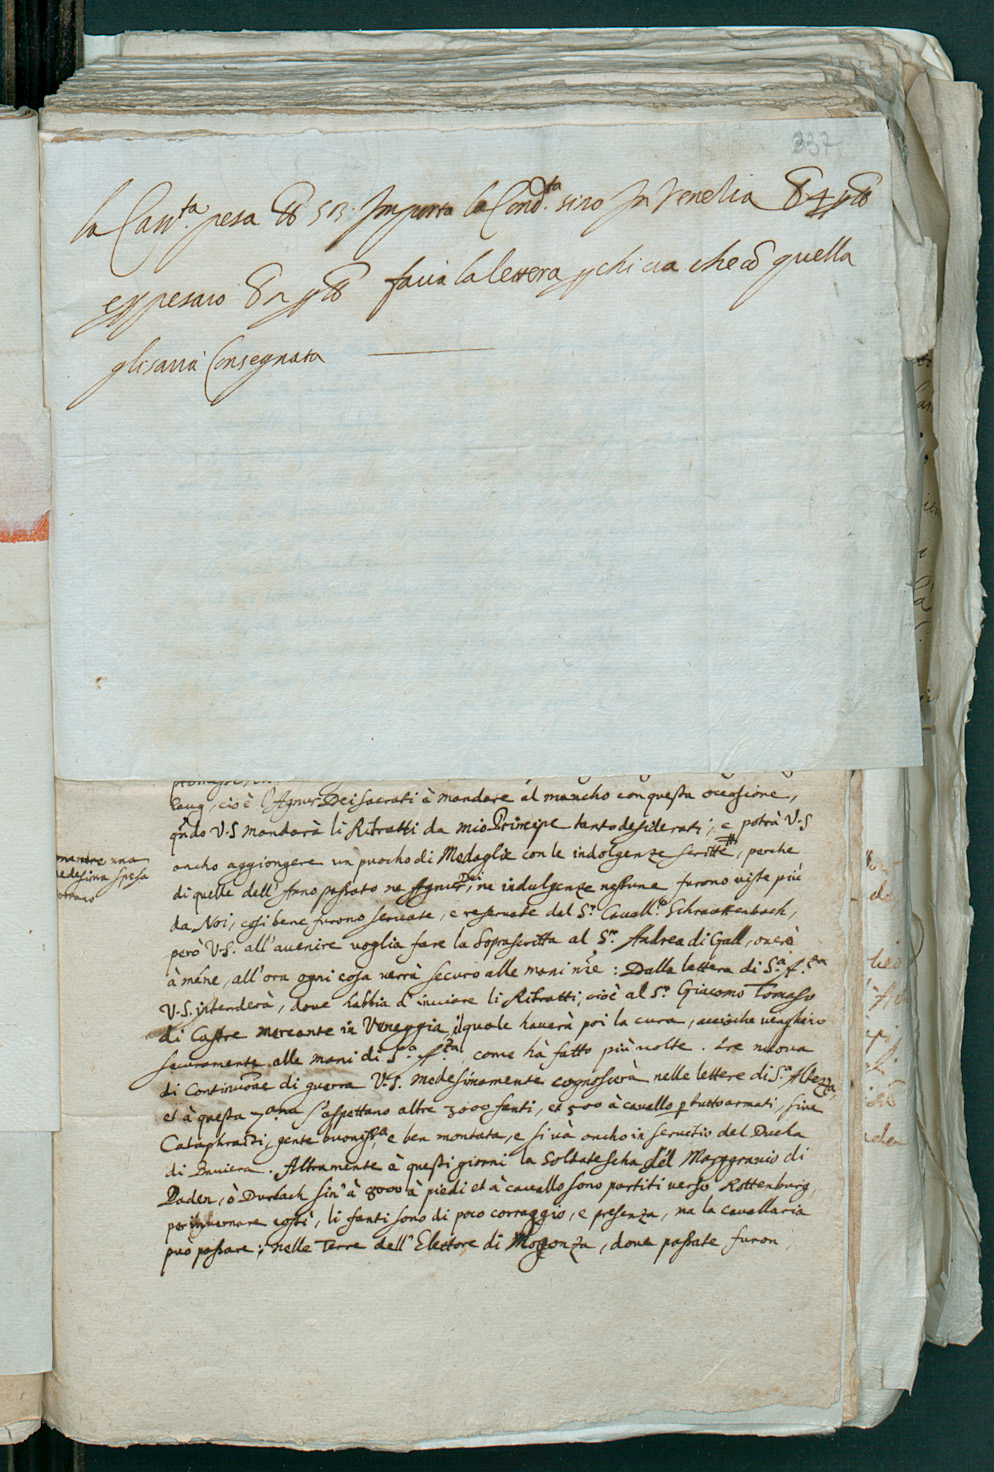 337
la Cass.ta pesa 513. Importa la Cond.ta sino In Venetia
et pesaro faria la lettera chi cia che cõ quella
gli sarrà Consegnata
cioè l'Agnus Dei sacrati à mandare al mancho con questa occasione,
qñdo V.S mandarà li Ritratti da mio Principe tanto desiderati, e potrà V.S
ancho aggiongere un puocho di Medaglie con le indolgenze scritte #, perche
di quelle dell'Anno passato ne Agnus Dei, ne indulgenze nessune furono viste più
da Noi, cosi bene furono seruate, e reseruate del S.r Cauall.o Schrattenbach,
però V.S. all'auenire voglia fare la soprascritta al S.r Andrea di Gall, ouerò
à mène, all'ora ogni cosa verrà securo alle mani nr̃e: Dalla lettera di S.a A.za
V.S. intenderà, doue habbia d'inuiare li Ritratti, cioè al S.r Giacomo Tomaso
di Castre mercante in Veneggia, il quale hauerà poi la cura, accioche venghino
securamente alle mani di S.a A.za, come hà fatto più uolte. Le nuoua
di Continuõne di guerra V.S. medesimamente cognoscerà nelle lettere di S.a Altezza,
et à questa 7.ana s'aspettano altre 3000 fanti, et 500 à cauallo p tutto armati, siue
Cataphracti, gente buonissa e ben montata, e si và ancho in seruitio del Ducha
di Bauiera. Altramente à questi giorni la Soldatescha del Marggrauio di
Baden, ò Durlach sin' à 8000 à piedi et à cauallo sono partiti verso Rottenburg,
per inuernare costi, li fanti sono di poco corraggio, e presenza, ma la cauallaria
puo passare; nelle Terre dell'Elettore di Mogonza, doue passate furon,
mentre una
medesima spesa